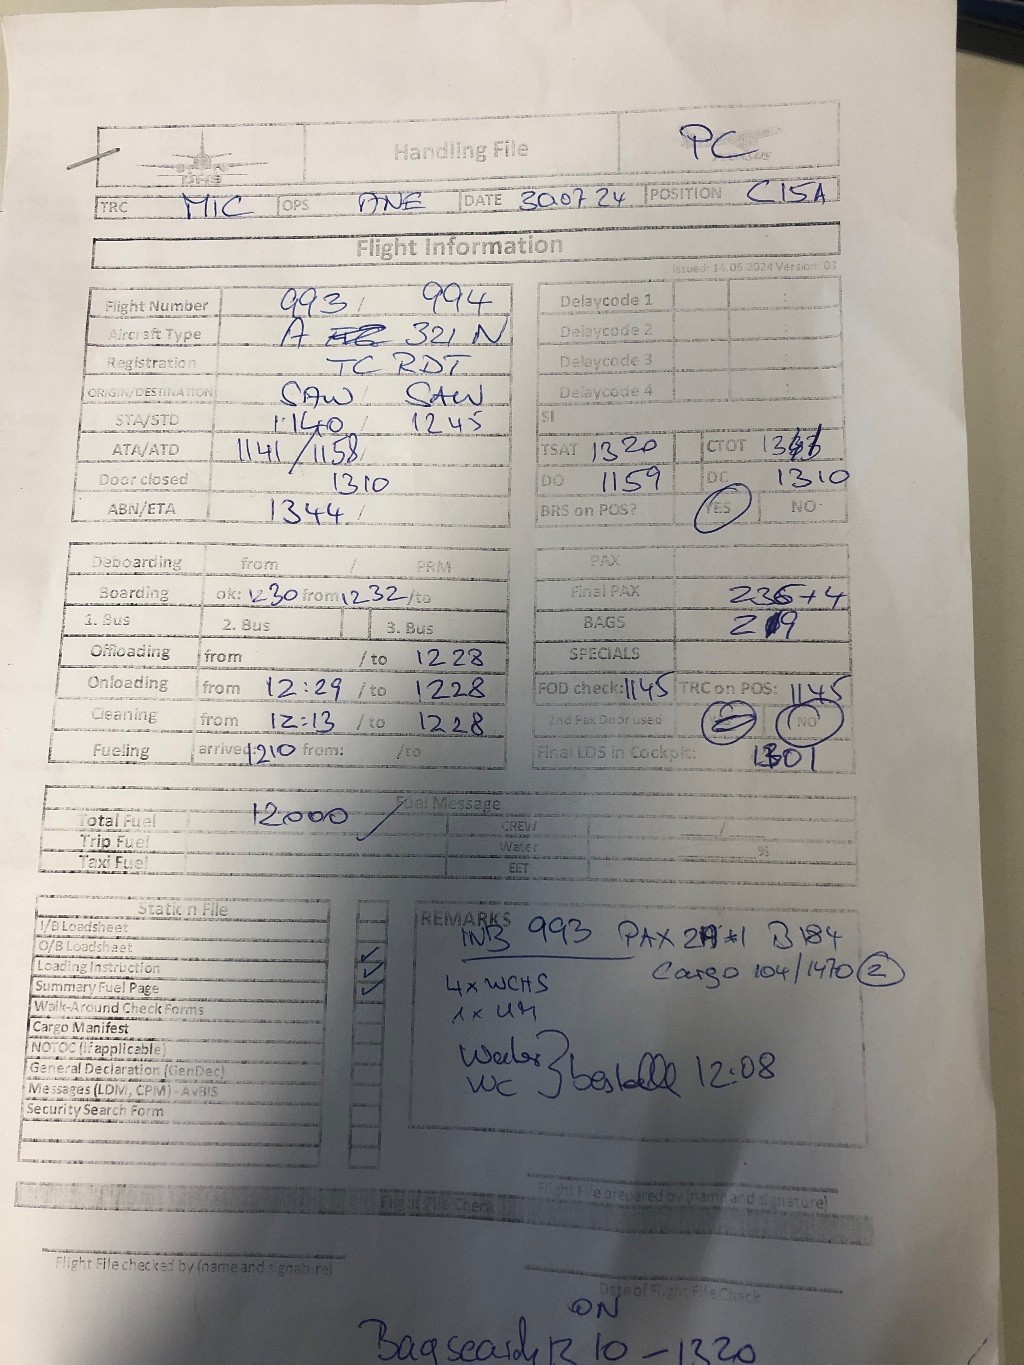 Handling File PC
TRC MIC OPS ANE DATE 30.07.24 POSITION C15A
Flight Information
Issued: 14.06.2024 Version: 03
Flight Number 993 / 994
Aircraft Type A 321 N
Registration TC RDT
ORIGIN/DESTINATION SAW / SAW
STA/STD 1140 / 1245
ATA/ATD 1141 / 1158
Door closed 1310
ABN/ETA 1344 /
Delaycode 1 :
Delaycode 2 :
Delaycode 3 :
Delaycode 4 :
SI
TSAT 1320 CTOT
DO 1159 DC 1310
BRS on POS? YES NO
Deboarding from / PRM
Boarding ok: 1230 from 1232 / to
1. Bus 2. Bus 3. Bus
Offloading from / to 1228
Onloading from 12:29 / to 1228
Cleaning from 12:13 / to 1228
Fueling arrived: 1210 from: / to
PAX
Final PAX 236+4
BAGS 219
SPECIALS
FOD check: 1145 TRC on POS: 1145
2nd Pax Door used NO
Final LDS in Cockpit: 1301
Fuel Message
Total Fuel 12000 CREW /
Trip Fuel Water %
Taxi Fuel EET
Station File
I/B Loadsheet
O/B Loadsheet
Loading Instruction
Summary Fuel Page
Walk-Around Check Forms
Cargo Manifest
NOTOC (if applicable)
General Declaration (GenDec)
Messages (LDM, CPM) - AvBIS
Security Search Form
REMARKS
INB 993 PAX B 184
Cargo 104/1470 2
4x WCHS
1x UM
Water
WC } bestellt 12:08
Flight File prepared by (name and signature)
Flight File Check
Flight File checked by (name and signature)
Date of Flight File Check
ON
Bagsearch 1310 - 1320